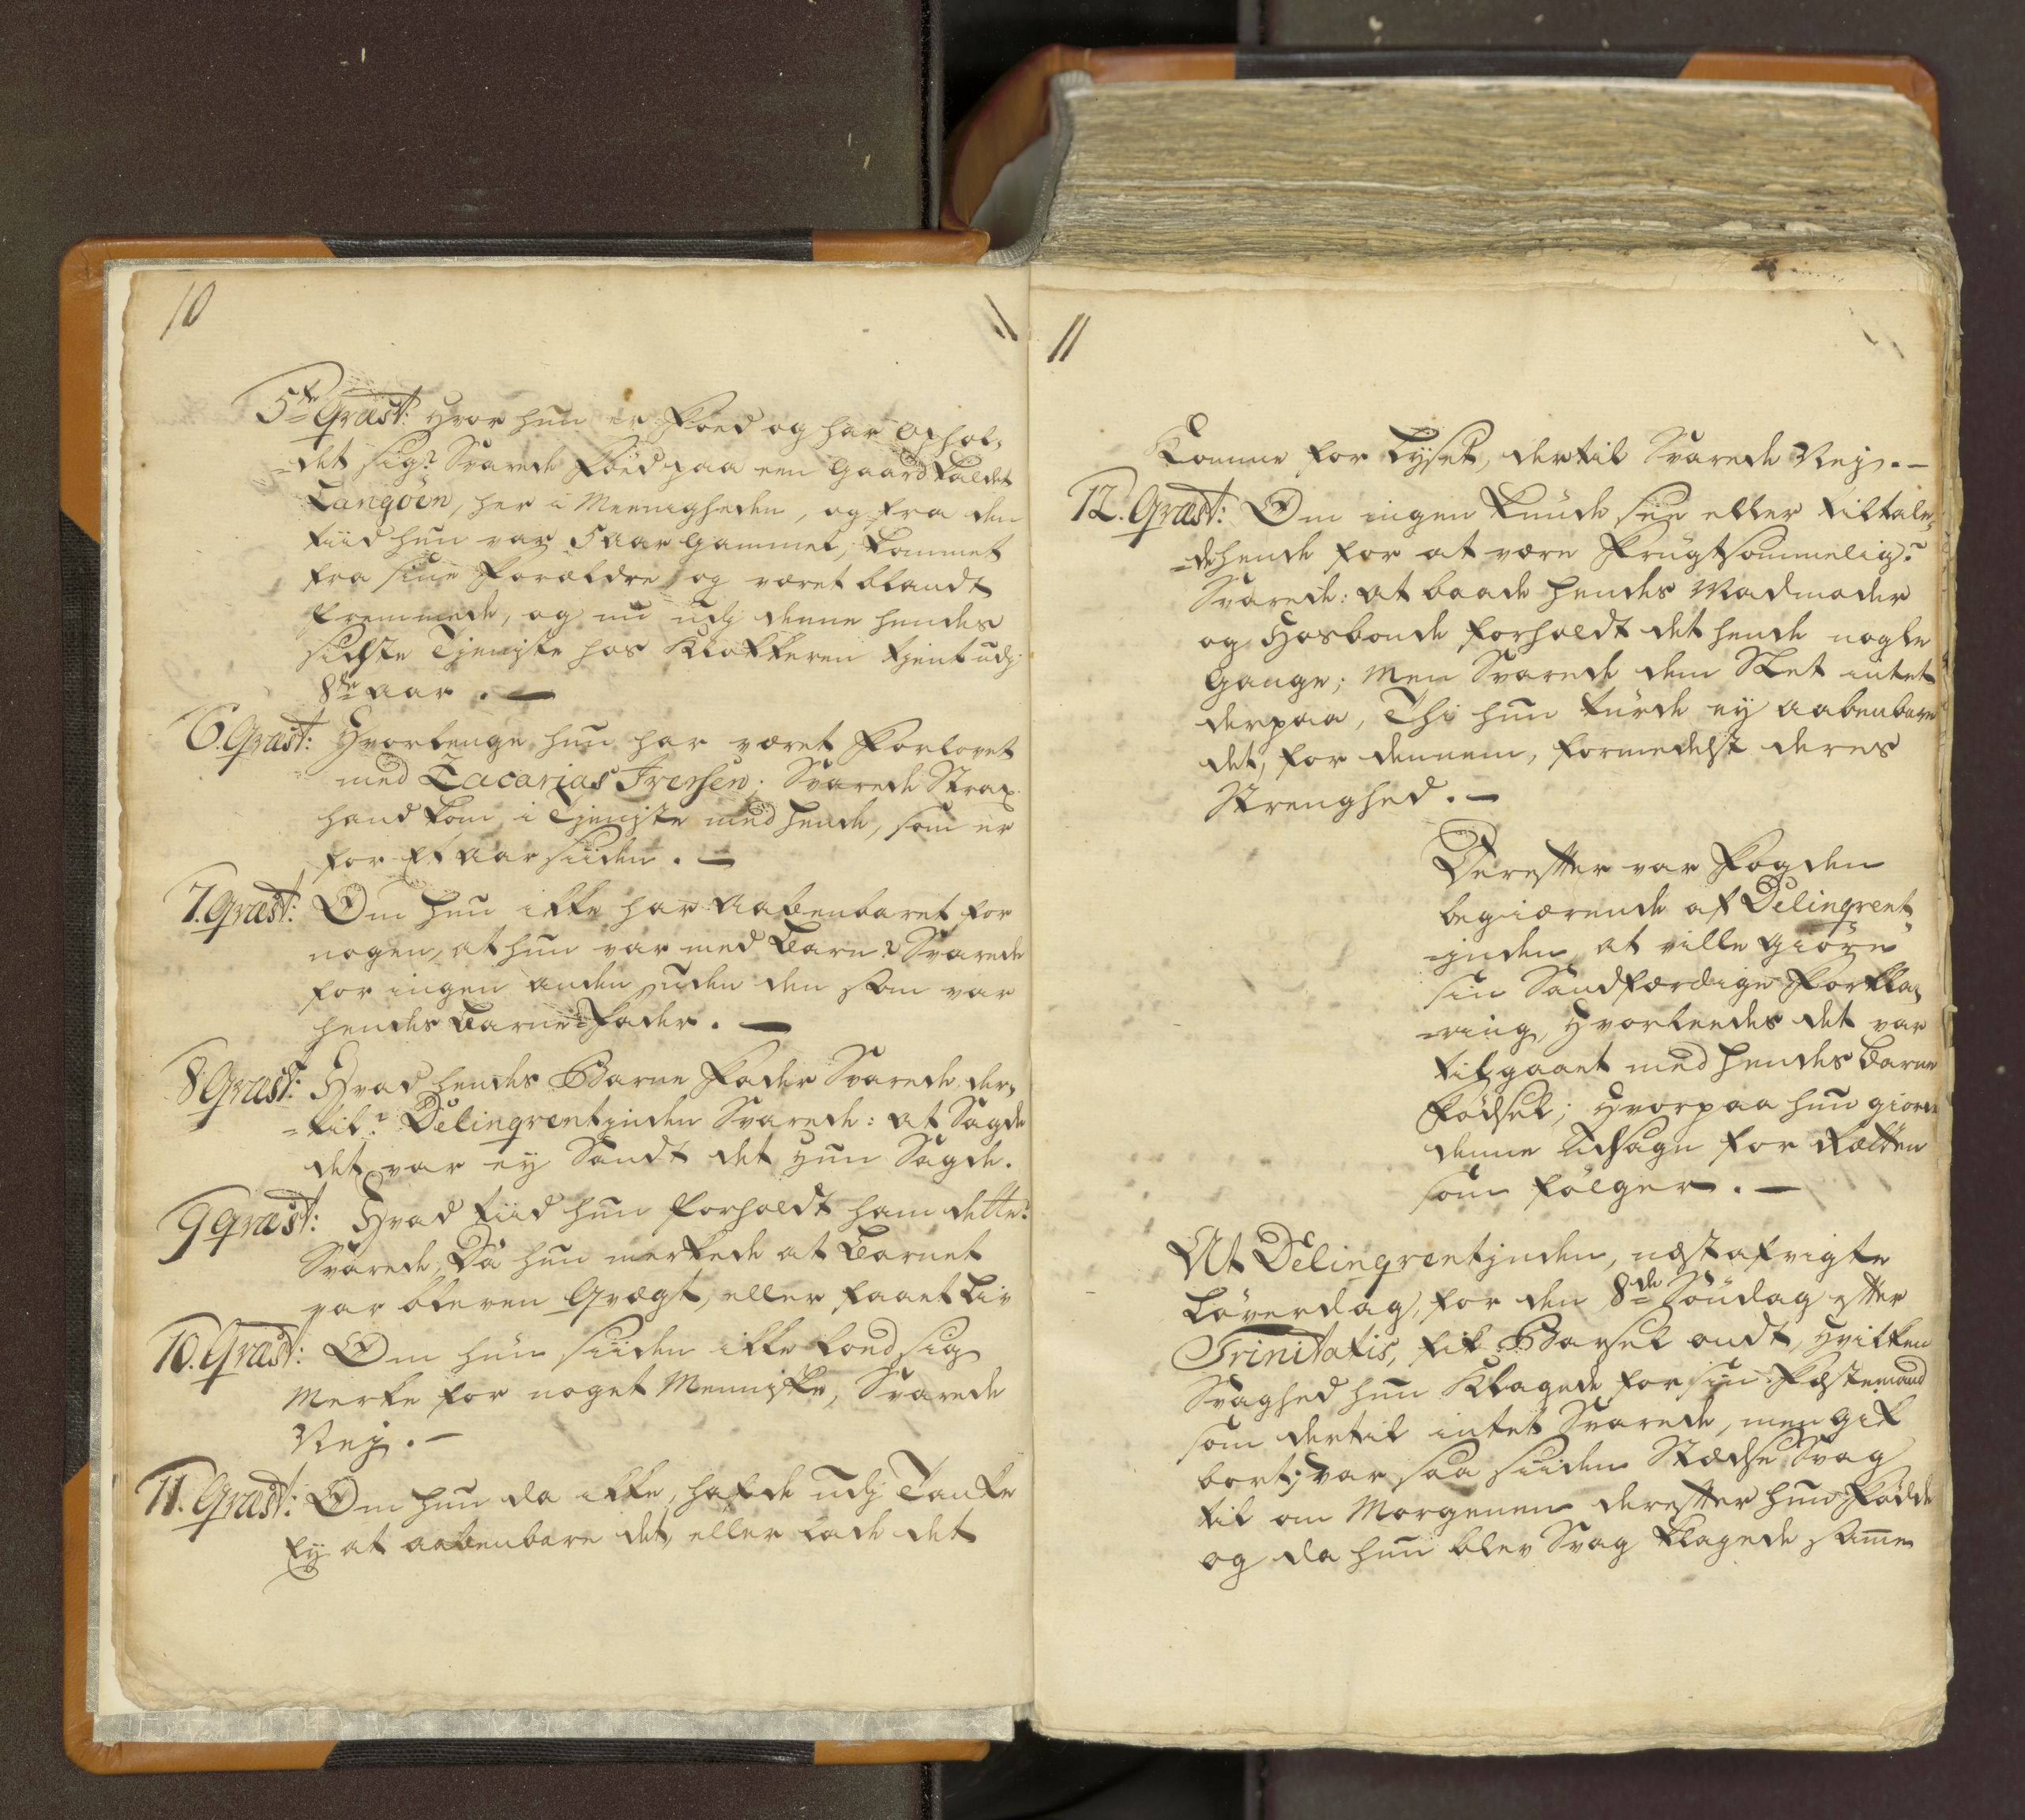 10
11
5te Qvæst: Hvor hun er Föed og har ophol-
=det sig? Svarede Föed paa een Gaard kaldet
Langöen, her i Meenigheden, og fra den
tiid hun var 5 Aar Gammel, kommet
fra sine Forældre og været blandt
fremmede, og nu udj denne hendes
sidste Tjeniste hos Klokkeren tjent udj
8te Aar. —
6. Qvæst: Hvorlenge hun har været Forlovet
med Zacarias Iversen; Svarede Strax
hand kom i Tjeniste med hende, som er
for Et Aar siiden. —
7. Qvæst: Om hun ikke har Aabenbaret for
nogen, at hun var med Barn? Svarede
for ingen anden uden den som var
hendes Barne-Fader. —
8 Qvæst: Hvad hendes Barne Fader Svarede der-
=til? Delinqventjnden Svarede: at Sagde
det var ey Sandt det hun Sagde.
9 Qvæst: Hvad tiid hun forholdt ham dette?
Svarede, Da hun merkede at Barnet
var bleven Qvægt, eller faaet Liv
10. Qvæst: Om hun siiden ikke loed sig
Merke for noget Menniske, Svarede
Nej. —
11. Qvæst: Om hun da ikke hafde udj Tanke
Ey at aabenbare det, eller lade det
11
Komme for Lyset, dertil Svarede Nej. —
12. Qvæst: Om ingen kunde see eller tiltale-
=de hende for at være Frugtsommelig?
Svarede: at baade hendes Madmoder
og Hosbonde forholdt det hende nogle
Gange; Men Svarede dem Slet intet
derpaa, Thi hun turde ey aabenbare
det, for dennem, formedelst deres
Strenghed. —
Derefter var Fogden
begiærende af Delinqvent-
=jnden at ville giöre
sin Sandfærdige Forkla-
=ring, Hvorleedes det var
tilgaaet med hendes Barne
Födsel; Hvorpaa hun giorde
denne Udsagn for Rætten
som fölger. —
At Delinqventjnden, næstafvigte
Löverdag, for den 8de Söndag efter
Trinitatis, fik Barsel ondt, hvilken
Svaghed hun Klagede for sin Fæstemand
som dertil intet Svarede, men gik
bort; var saa siiden Stædse Svag
til om Morgenen derefter hun Födde
og da hun blev Svag klagede samme